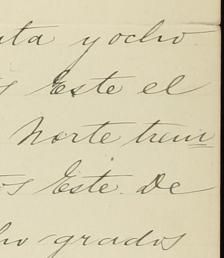 nta y ocho
s Este el
Norte trein
os Este. De
ho grados